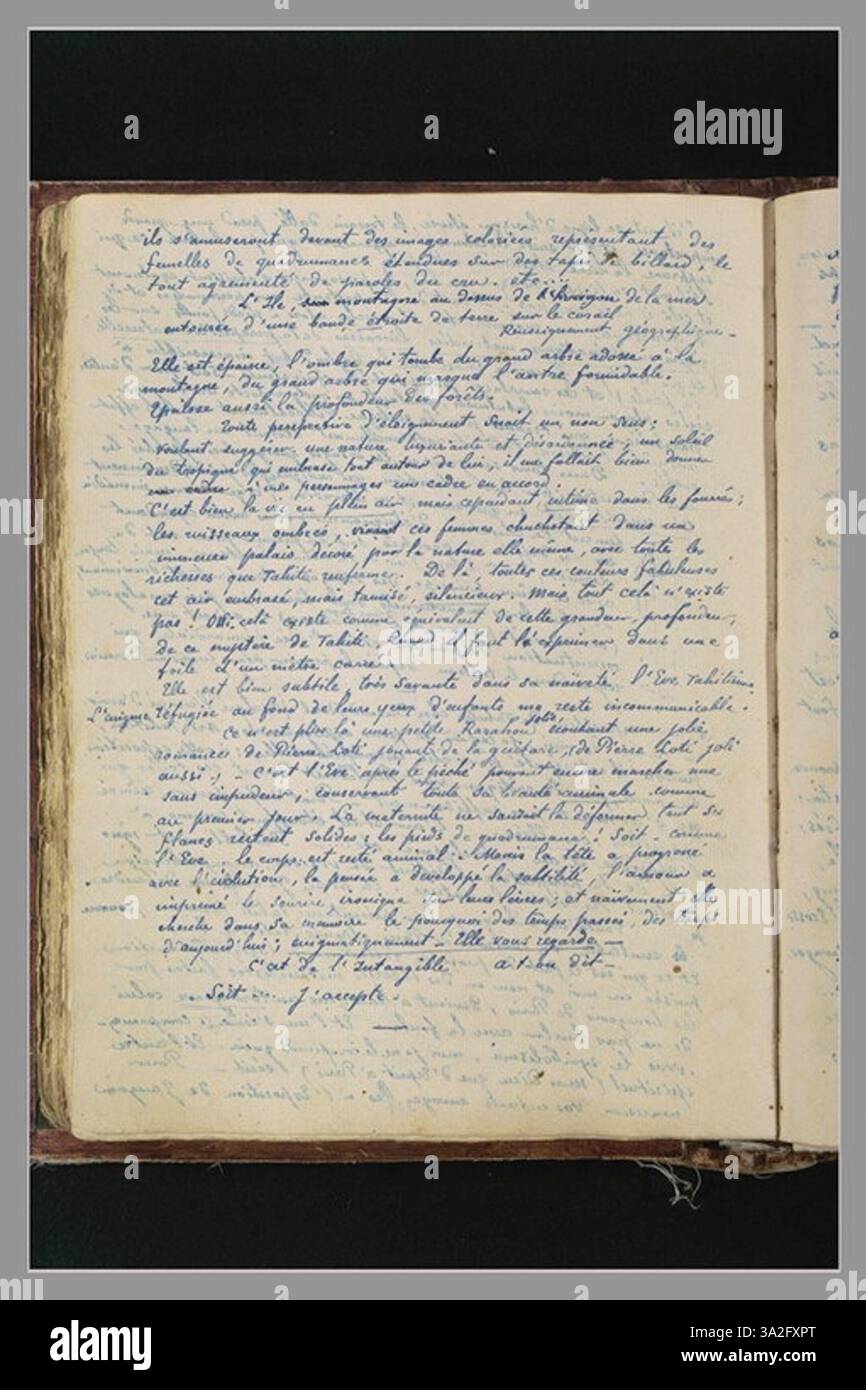 ils s'amuseront devant des images coloriées représentant, des
femelles de quadrumanes étendues sur des tapis de billard, le
tout agrémenté de paroles du cru. etc...
L'Ile, montagne au dessus de l'horizon de la mer
entourée d'une bande étroite de terre sur le corail
Renseignement géographique_
Elle est épaisse, l'ombre qui tombe du grand arbre adossé à la
montagne, du grand arbre qui masqua l'antre formidable.
Epaisse aussi la profondeur des forêts.
Toute perspective d'éloignement serait un non sens;
voulant suggérer une nature luxuriante et désordonnée, un soleil
du tropique qui embrase tout autour de lui, il me fallait bien donner
un cadre à mes personnages un cadre en accord.
C'est bien la vie en plein air mais cependant intime dans les fourrés;
les ruisseaux ombrés, ces femmes chuchotant dans un
immense palais décoré par la nature elle même, avec toutes les
richesses que Tahiti renferme. De là, toutes ces couleurs fabuleuses
cet air embrasé, mais tamisé, silencieux. Mais tout celà n'existe
pas! Oui, celà existe comme équivalent de cette grandeur, profondeur,
de ce mystère de Tahiti, quand il faut l'exprimer dans une
toile d'un mètre carré.
Elle est bien subtile, très savante dans sa naïveté, l'Eve Tahitienne.
L'énigme réfugiée au fond de leurs yeux d'enfants me reste incommunicable.
Ce n'est plus là une petite Rarahou jolie écoutant une jolie
romance de Pierre Loti jouant de la guitare, (de Pierre Loti joli
aussi.) _ C'est l'Eve après le péché pouvant encore marcher nue
sans impudeur, conservant toute sa beauté animale comme
au premier jour. La maternité ne saurait la déformer tant ses
flancs restent solides: les pieds de quadrumane! Soit. comme
l'Eve, le corps est resté animal. Mais la tête a progressé
avec l'évolution, la pensée a développé la subtilité, l'amour a
imprimé le sourire ironique sur leurs lèvres; et naïvement elle
cherche dans sa mémoire le pourquoi des temps passés, des temps
d'aujourd'hui; enigmatiquement_ Elle vous regarde_
C'est de l'Intangible a-t-on dit_
Soit... J'accepte.
alamy
Image ID: 3A2FXPT
www.alamy.com